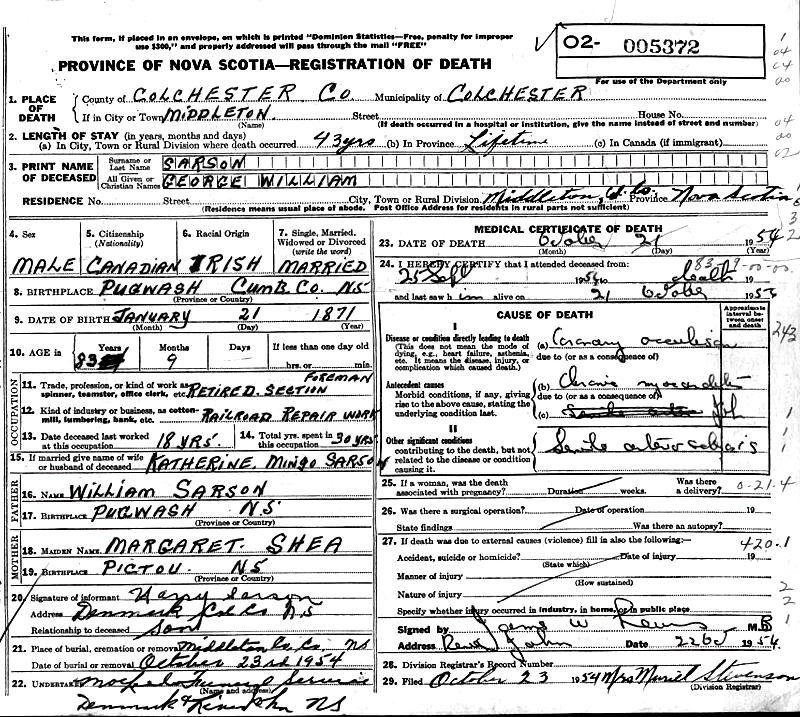 This form, if placed in an envelope, on which is printed "Dominion Statistics—Free, penalty for improper
use $300," and properly addressed will pass through the mail "FREE"
O2- 005372
For use of the Department only
PROVINCE OF NOVA SCOTIA—REGISTRATION OF DEATH
1. PLACE OF DEATH County of COLCHESTER Co. Municipality of COLCHESTER
If in City or Town MIDDLETON Street House No.
(Name) (If death occurred in a hospital or institution, give the name instead of street and number)
2. LENGTH OF STAY (in years, months and days)
(a) In City, Town or Rural Division where death occurred 43 yrs (b) In Province Lifetime (c) In Canada (if immigrant)
3. PRINT NAME OF DECEASED Surname or Last Name SARSON
All Given or Christian Names GEORGE WILLIAM
RESIDENCE No. Street City, Town or Rural Division Middleton, Province Nova Scotia
(Residence means usual place of abode. Post Office Address for residents in rural parts not sufficient)
4. Sex 5. Citizenship (Nationality) 6. Racial Origin 7. Single, Married, Widowed or Divorced (write the word)
MALE CANADIAN IRISH MARRIED
8. BIRTHPLACE PUGWASH Cumb. Co. NS
(Province or Country)
9. DATE OF BIRTH JANUARY 21 1871
(Month) (Day) (Year)
10. AGE in Years Months Days If less than one day old
83 9 hrs. or min.
OCCUPATION
11. Trade, profession, or kind of work as spinner, teamster, office clerk, etc. RETIRED. SECTION FOREMAN
12. Kind of industry or business, as cotton-mill, lumbering, bank, etc. RAILROAD REPAIR WORK
13. Date deceased last worked at this occupation 18 YRS 14. Total yrs. spent in this occupation 30 YRS
15. If married give name of wife or husband of deceased KATHERINE MINGO SARSON
FATHER
16. NAME WILLIAM SARSON
17. BIRTHPLACE PUGWASH NS
(Province or Country)
MOTHER
18. MAIDEN NAME MARGARET. SHEA
19. BIRTHPLACE PICTOU NS
(Province or Country)
20. Signature of informant Harry Sarson
Address Denmark Col Co N.S
Relationship to deceased Son
21. Place of burial, cremation or removal Middleton Co. NS
Date of burial or removal October 23rd 1954
22. UNDERTAKER Funeral Service
(Name and address)
Denmark NS
MEDICAL CERTIFICATE OF DEATH
23. DATE OF DEATH October 21 1954
(Month) (Day) (Year)
24. I HEREBY CERTIFY that I attended deceased from:
25 Sept 1954 to death
and last saw him alive on 21 October 195
CAUSE OF DEATH
Approximate interval between onset and death
I
Disease or condition directly leading to death (a) Coronary occlusion
(This does not mean the mode of dying, e.g., heart failure, asthenia, etc. It means the disease, injury, or complication which caused death.)
due to (or as a consequence of)
Antecedent causes (b) Chronic myocarditis
Morbid conditions, if any, giving rise to the above cause, stating the underlying condition last.
due to (or as a consequence of)
(c)
II
Other significant conditions Senile arteriosclerosis
contributing to the death, but not related to the disease or condition causing it.
25. If a woman, was the death associated with pregnancy? Duration weeks. Was there a delivery?
26. Was there a surgical operation? Date of operation 19
State findings Was there an autopsy?
27. If death was due to external causes (violence) fill in also the following:—
Accident, suicide or homicide? Date of injury 19
(State which)
Manner of injury
(How sustained)
Nature of injury
Specify whether injury occurred in industry, in home, or in public place
Signed by James W M.D.
Address River John Date 22 Oct 1954
28. Division Registrar's Record Number
29. Filed October 23 1954 Mrs Muriel Stevenson
(Division Registrar)
243
0.21.4
420.1